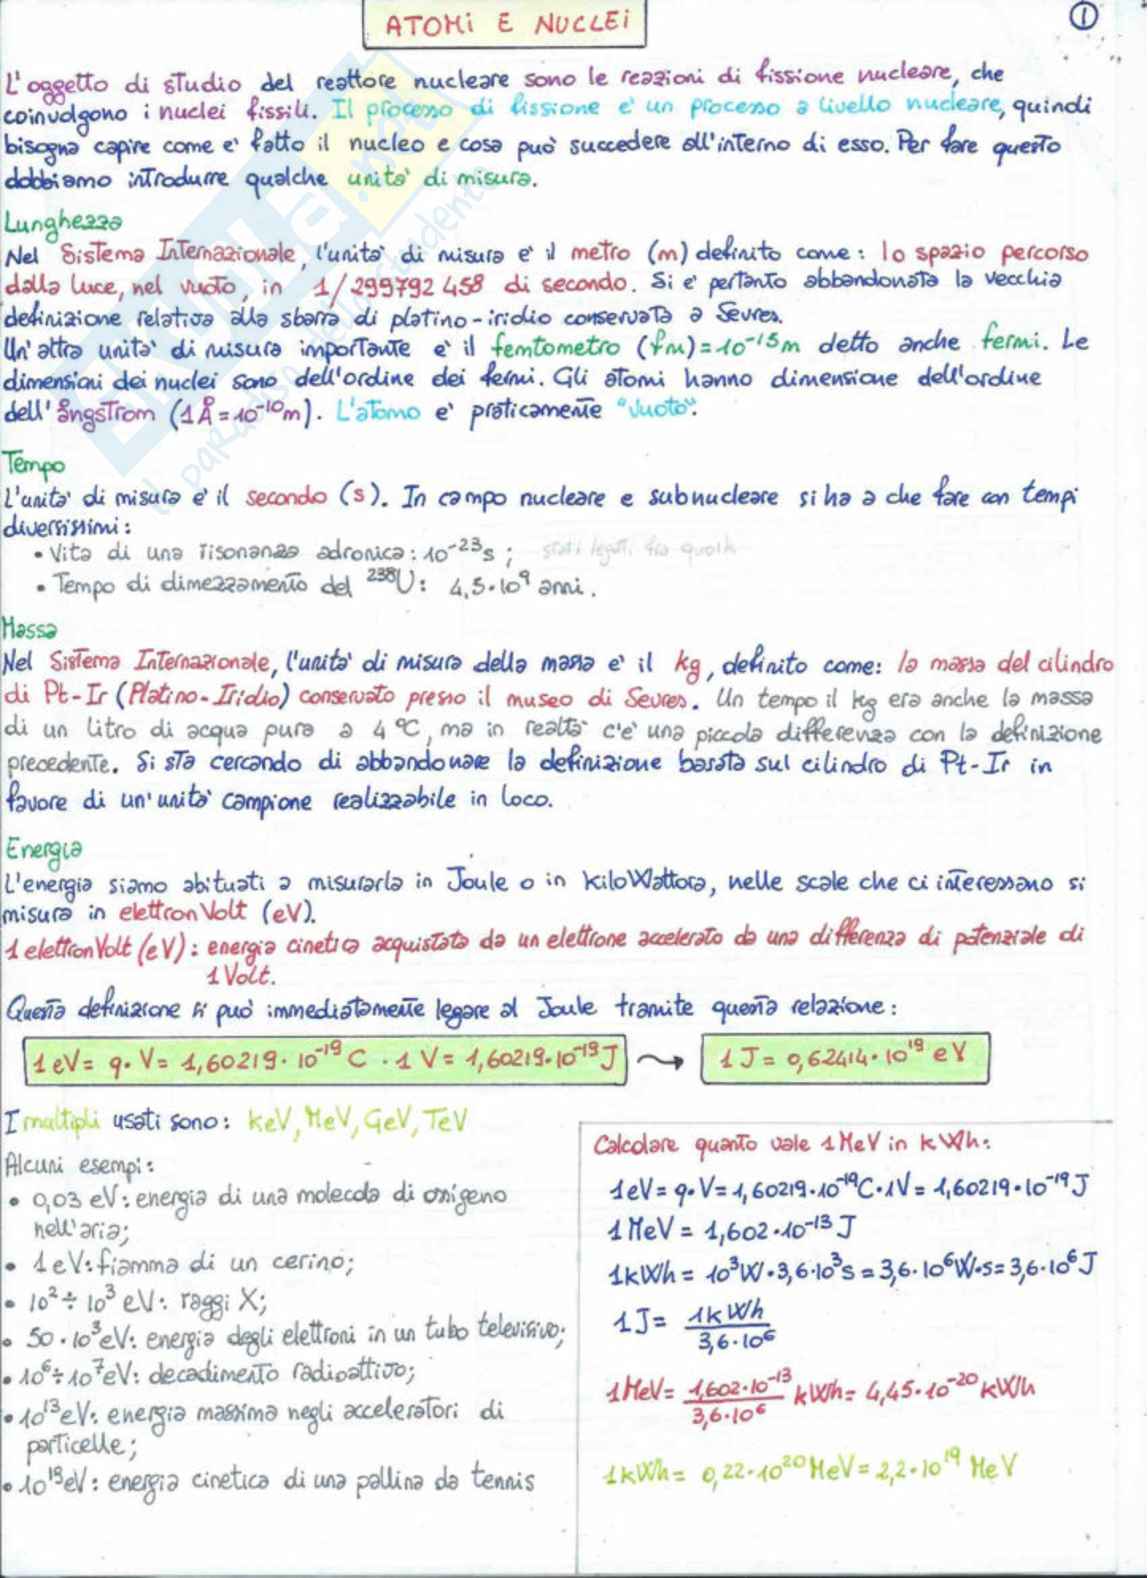 ATOMI E NUCLEI
1
L'oggetto di studio del reattore nucleare sono le reazioni di fissione nucleare, che
coinvolgono i nuclei fissili. Il processo di fissione e' un processo a livello nucleare, quindi
bisogna capire come e' fatto il nucleo e cosa può succedere all'interno di esso. Per fare questo
dobbiamo introdurre qualche unita' di misura.
Lunghezza
Nel Sistema Internazionale, l'unita' di misura e' il metro (m) definito come: lo spazio percorso
dalla luce, nel vuoto, in 1/299792 458 di secondo. Si e' pertanto abbandonata la vecchia
definizione relativa alla sbarra di platino-iridio conservata a Sevres.
Un'altra unita' di misura importante e' il femtometro (fm)=10⁻¹⁵m detto anche fermi. Le
dimensioni dei nuclei sono dell'ordine dei fermi. Gli atomi hanno dimensione dell'ordine
dell'ångstrom (1Å=10⁻¹⁰m). L'atomo e' praticamente "vuoto".
Tempo
L'unita' di misura e' il secondo (s). In campo nucleare e subnucleare si ha a che fare con tempi
diversissimi:
• Vita di una risonanza adronica: 10⁻²³s ; stati legati fra quark
• Tempo di dimezzamento del ²³⁸U: 4,5·10⁹ anni.
Massa
Nel Sistema Internazionale, l'unita' di misura della massa e' il kg, definito come: la massa del cilindro
di Pt-Ir (Platino-Iridio) conservato presso il museo di Sevres. Un tempo il kg era anche la massa
di un litro di acqua pura a 4 °C, ma in realta' c'e' una piccola differenza con la definizione
precedente. Si sta cercando di abbandonare la definizione basata sul cilindro di Pt-Ir in
favore di un'unita' campione realizzabile in loco.
Energia
L'energia siamo abituati a misurarla in Joule o in KiloWattora, nelle scale che ci interessano si
misura in elettronVolt (eV).
1 elettronVolt (eV): energia cinetica acquistata da un elettrone accelerato da una differenza di potenziale di
1 Volt.
Questa definizione si può immediatamente legare al Joule tramite questa relazione:
1 eV = q·V = 1,60219·10⁻¹⁹ C · 1 V = 1,60219·10⁻¹⁹ J → 1 J = 0,62414·10¹⁹ eV
I multipli usati sono: keV, MeV, GeV, TeV
Alcuni esempi:
• 0,03 eV: energia di una molecola di ossigeno
nell'aria;
• 1 eV: fiamma di un cerino;
• 10²÷10³ eV: raggi X;
• 50·10³eV: energia degli elettroni in un tubo televisivo;
• 10⁶÷10⁷eV: decadimento radioattivo;
• 10¹³eV: energia massima negli acceleratori di
particelle;
• 10¹⁹eV: energia cinetica di una pallina da tennis
Calcolare quanto vale 1 MeV in kWh:
1eV = q·V = 1,60219·10⁻¹⁹C·1V = 1,60219·10⁻¹⁹J
1 MeV = 1,602·10⁻¹³ J
1kWh = 10³W·3,6·10³s = 3,6·10⁶W·s = 3,6·10⁶J
1J = 1kWh / 3,6·10⁶
1MeV = 1,602·10⁻¹³ / 3,6·10⁶ kWh = 4,45·10⁻²⁰ kWh
1kWh = 0,22·10²⁰ MeV = 2,2·10¹⁹ MeV